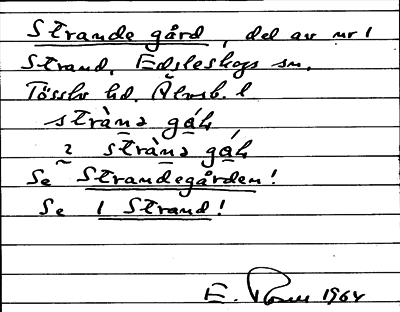 Strande gård, del av nr 1
Strand, Edsleskogs sn,
Tössbo hd. Älvsb. l
strànə gáḷ
2 strànə gáḷ
Se Strandegården!
Se 1 Strand!
E. 1964